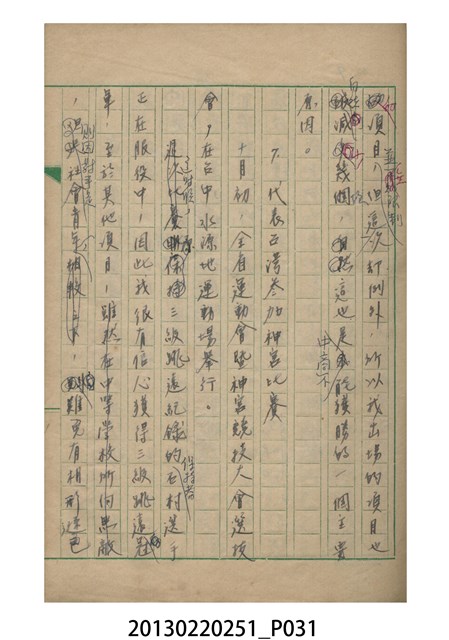 項目，但這次却例外，所以我出場的項目也
減幾個，這也是我能獲勝的一個主要
原因。
7、代表台湾參加神宮比賽
十月初，全省運動會暨神宮競技大會選拔
會，在台中水源地運動場舉行。
這時候，原保持三級跳遠紀錄的石村選手
正在服役中，因此我很有信心獲得三級跳遠冠
軍，至於其他項目，雖然在中等學校所向無敵
，但與社會青年相較之下，難免有相形遜色
20130220251_P031